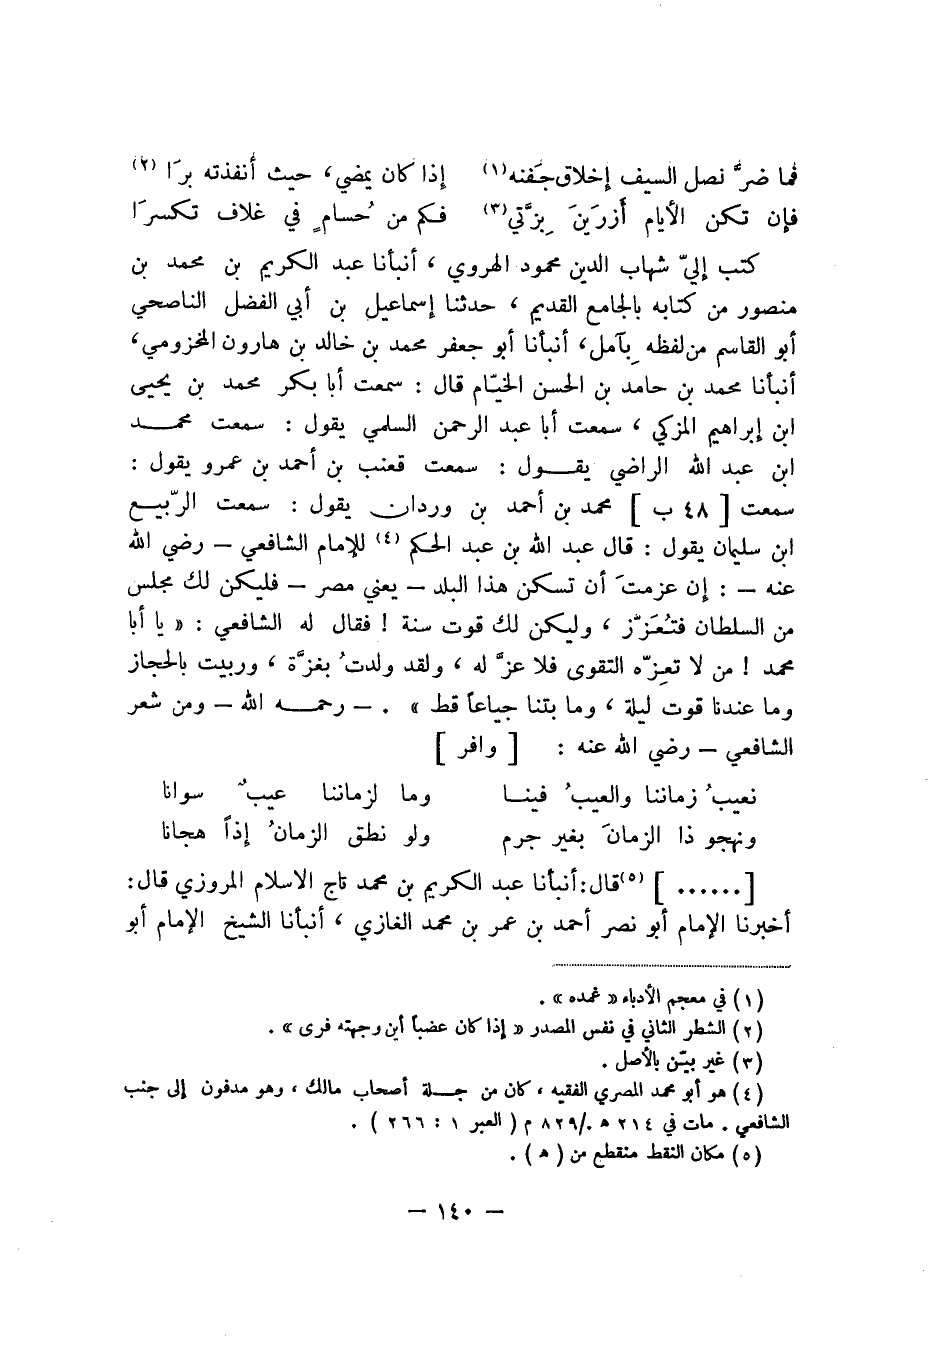 فما ضرَّ نصل السيف إخلاق جَفنه(١) إذا كان يمضي، حيث أنفذته برَا (٢)
فإن تكن الأيام أَزرَينَ بِزَّتي(٣) فكم من حُسامٍ في غلاف تكسرَا
كتب إليّ شهاب الدين محمود الهروي ، أنبأنا عبد الكريم بن محمد بن
منصور من كتابه بالجامع القديم ، حدثنا إسماعيل بن أبي الفضل الناصحي
أبو القاسم من لفظه بِآمل، أنبأنا أبو جعفر محمد بن خالد بن هارون المخزومي،
أنبأنا محمد بن حامد بن الحسن الخيّام قال : سمعت أبا بكر محمد بن يحيى
ابن إبراهيم المزكي ، سمعت أبا عبد الرحمن السلمي يقول : سمعت محمـــد
ابن عبد الله الراضي يقـــول : سمعت قعنب بن أحمد بن عمرو يقول :
سمعت [ ٤٨ ب ] محمد بن أحمد بن وردان يقول : سمعت الرّبيـــع
ابن سليمان يقول : قال عبد الله بن عبد الحكم (٤) للإمام الشافعي – رضي الله
عنه – : إن عزمتَ أن تسكن هذا البلد – يعني مصر – فليكن لك مجلس
من السلطان فتُعَزّز ، وليكن لك قوت سنة ! فقال له الشافعي : « يا أبا
محمد ! من لا تعِزّه التقوى فلا عزَّ له ، ولقد ولدتُ بغزَّة ، وربيت بالحجاز
وما عندنا قوت ليلة ، وما بتنا جياعاً قط » . – رحمـــه الله – ومن شعر
الشافعي – رضي الله عنه : [ وافر ]
نعيبُ زماننا والعيبُ فينـــا وما لزماننا عيبٌ سوانا
ونهجو ذا الزمانَ بغير جرم ولو نطق الزمانُ إذاً هجانا
[ ...... ] (٥)قال: أنبأنا عبد الكريم بن محمد تاج الاسلام المروزي قال:
أخبرنا الإمام أبو نصر أحمد بن عمر بن محمد الغازي ، أنبأنا الشيخ الإمام أبو
(١) في معجم الأدباء « غمده » .
(٢) الشطر الثاني في نفس المصدر « إذا كان عضباً أين وجهته فرى » .
(٣) غير بيّن بالأصل .
(٤) هو أبو محمد المصري الفقيه ، كان من جـــلة أصحاب مالك ، وهو مدفون إلى جنب
الشافعي . مات في ٢١٤ هـ /٨٢٩ م ( العبر ١ : ٢٦٦ ) .
(٥) مكان النقط منقطع من ( ه ) .
– ١٤٠ –